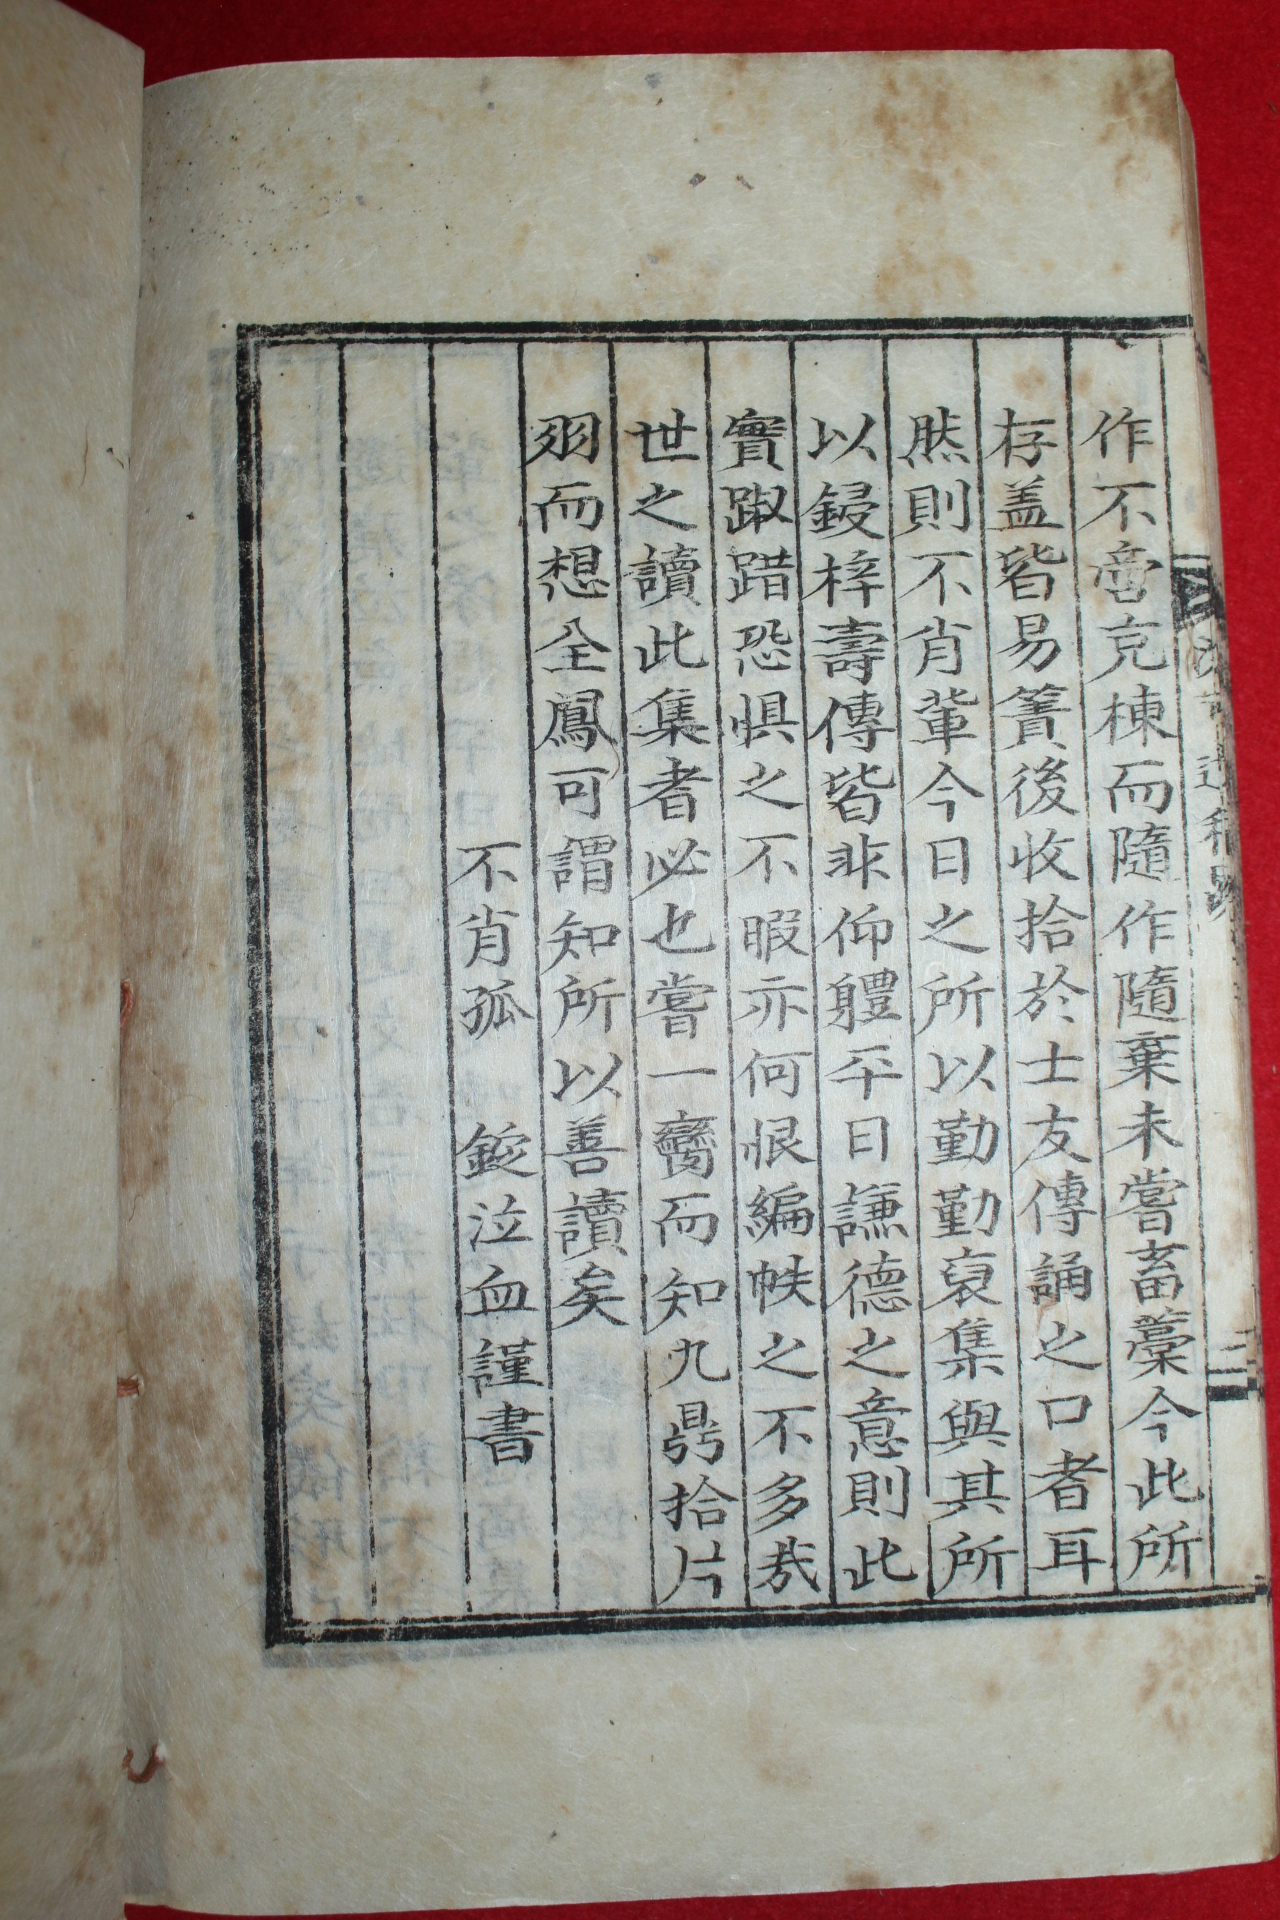 作不啻充棟而隨作隨棄未嘗畜藁今此所
存盖皆易簀後收拾於士友傳誦之口者耳
然則不肖輩今日之所以勤勤裒集與其所
以鋟梓壽傳皆非仰體平日謙德之意則此
實踧踖恐惧之不暇亦何恨編帙之不多哉
世之讀此集者必也嘗一臠而知九鼎拾片
羽而想全鳳可謂知所以善讀矣
不肖孤 鐩泣血謹書
遺稿跋
二